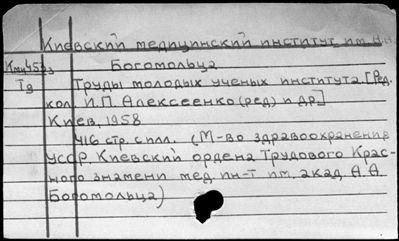 Киевский медицинский институт им. А.А.
Богомольца
Труды молодых ученых института. [Ред.
кол. И.П. Алексеенко (ред) и др.]
Киев, 1958
416 стр. с илл. (М-во здравоохранения
УССР. Киевский ордена Трудового Крас-
ного знамени мед. ин-т им. акад. А.А.
Богомольца)